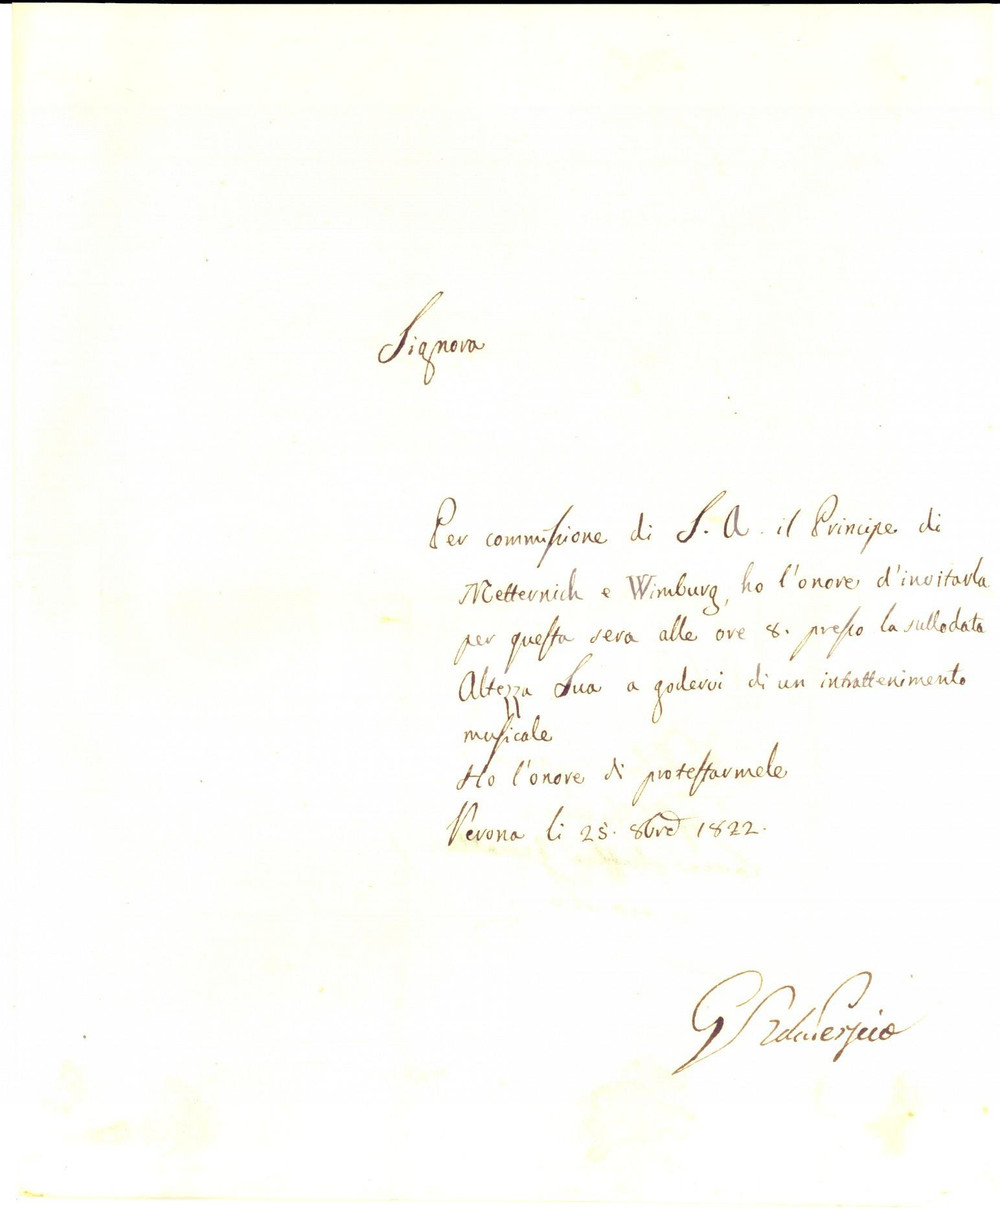 Signora
Per commissione di S. A. il Principe di
Metternich e Wimburg, ho l'onore d'invitarla
per questa sera alle ore 8. presso la sullodata
Altezza Sua a godervi di un intrattenimento
musicale
Ho l'onore di protestarmele
Verona li 25. 8bre 1822.
G